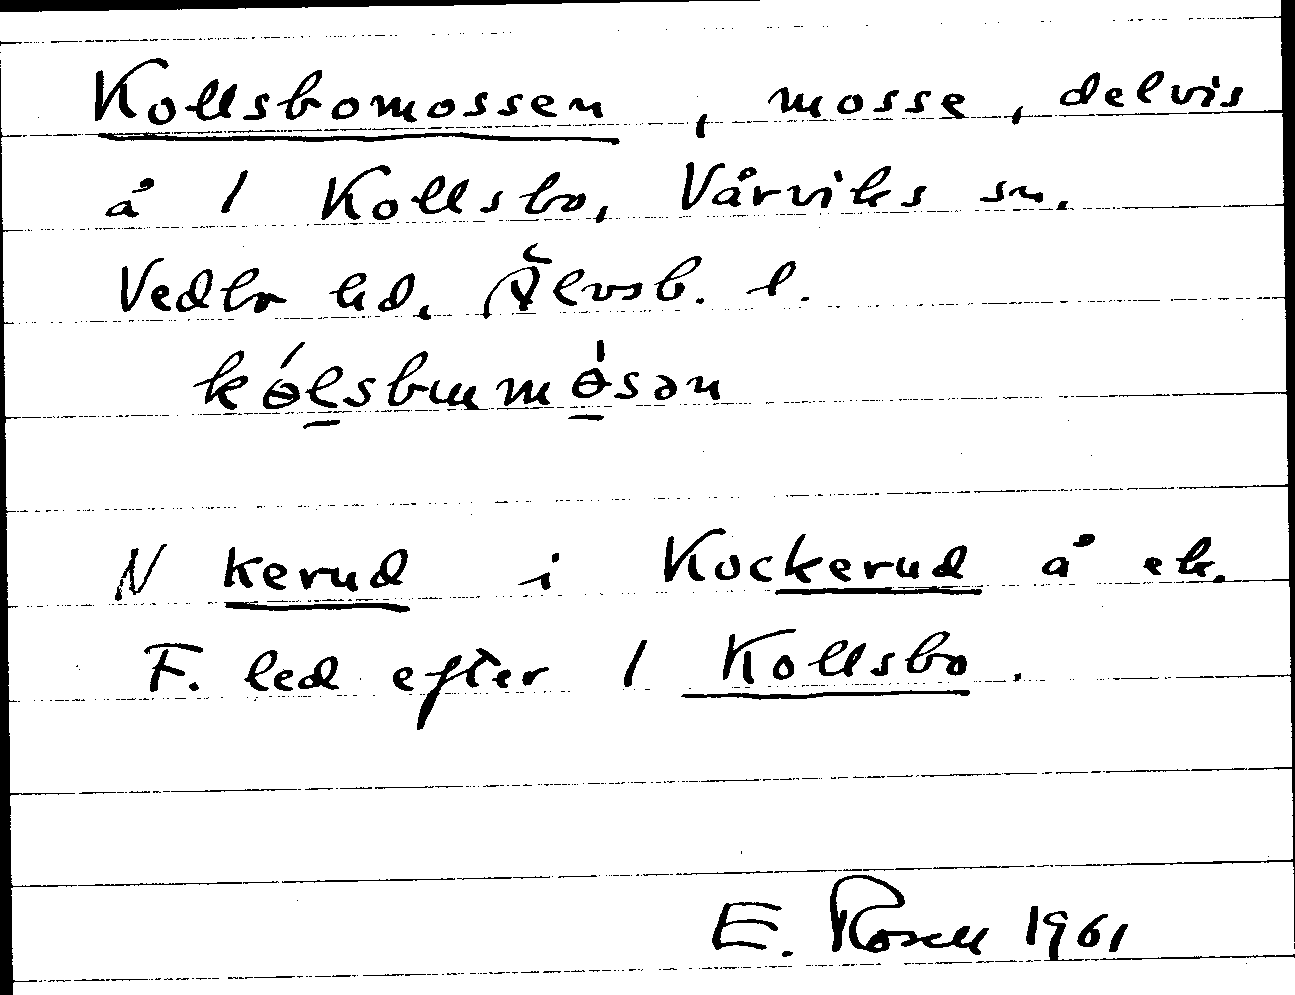 Kollsbomossen, mosse, delvis
å 1 Kollsbo, Vårviks sn.
Vedbo hd. Älvsb. l.
kólsbumòsən
N kerud i Kockerud å ek.
F. led efter 1 Kollsbo.
E. Rosell 1961